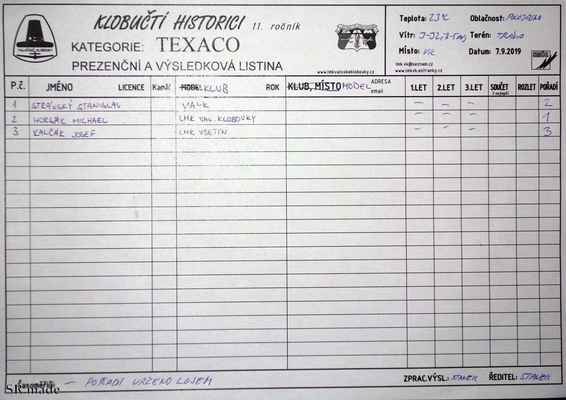 KLOBUČTÍ HISTORICI 11. ročník
KATEGORIE: TEXACO
PREZENČNÍ A VÝSLEDKOVÁ LISTINA
Teplota: 23°C Oblačnost:
Vítr: Terén: TRÁVA
Místo: VK Datum: 7.9.2019
P.č. JMÉNO LICENCE Kanál MODEL KLUB ROK KLUB, MÍSTO MODEL ADRESA email 1.LET 2.LET 3.LET SOUČET ROZLET POŘADÍ
1 STRÁNSKÝ STANISLAV VALK – – – 2
2 HORSÁK MICHAEL LMK VAL. KLOBOUKY – – – 1
3 KALČÁK JOSEF LMK VSETÍN – – – 3
Časoměřiči: – POŘADÍ URČENO LOSEM ZPRAC.VÝSL: STANĚK ŘEDITEL: STANĚK
SK made